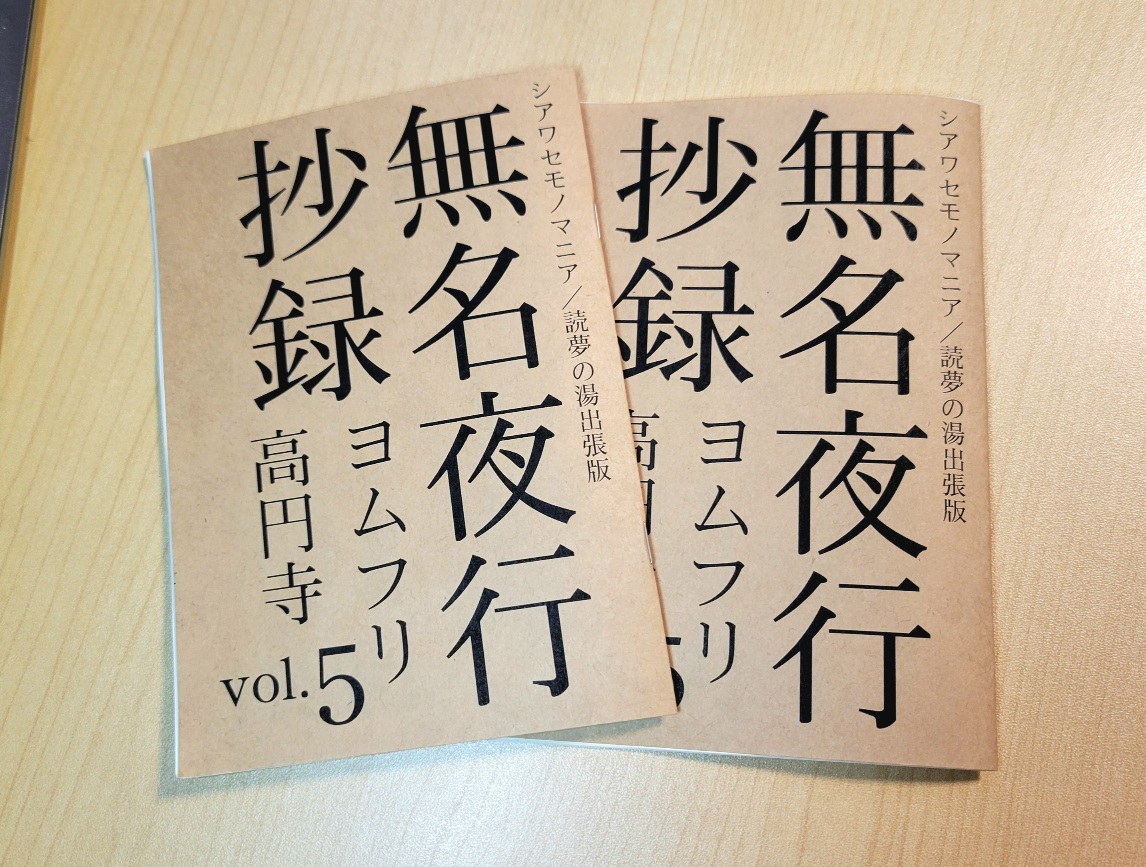 シアワセモノマニア／読夢の湯出張版
無名夜行
抄録
ヨムフリ
高円寺
vol.5
シアワセモノマニア／読夢の湯出張版
無名夜行
抄録
ヨムフリ
高円
5